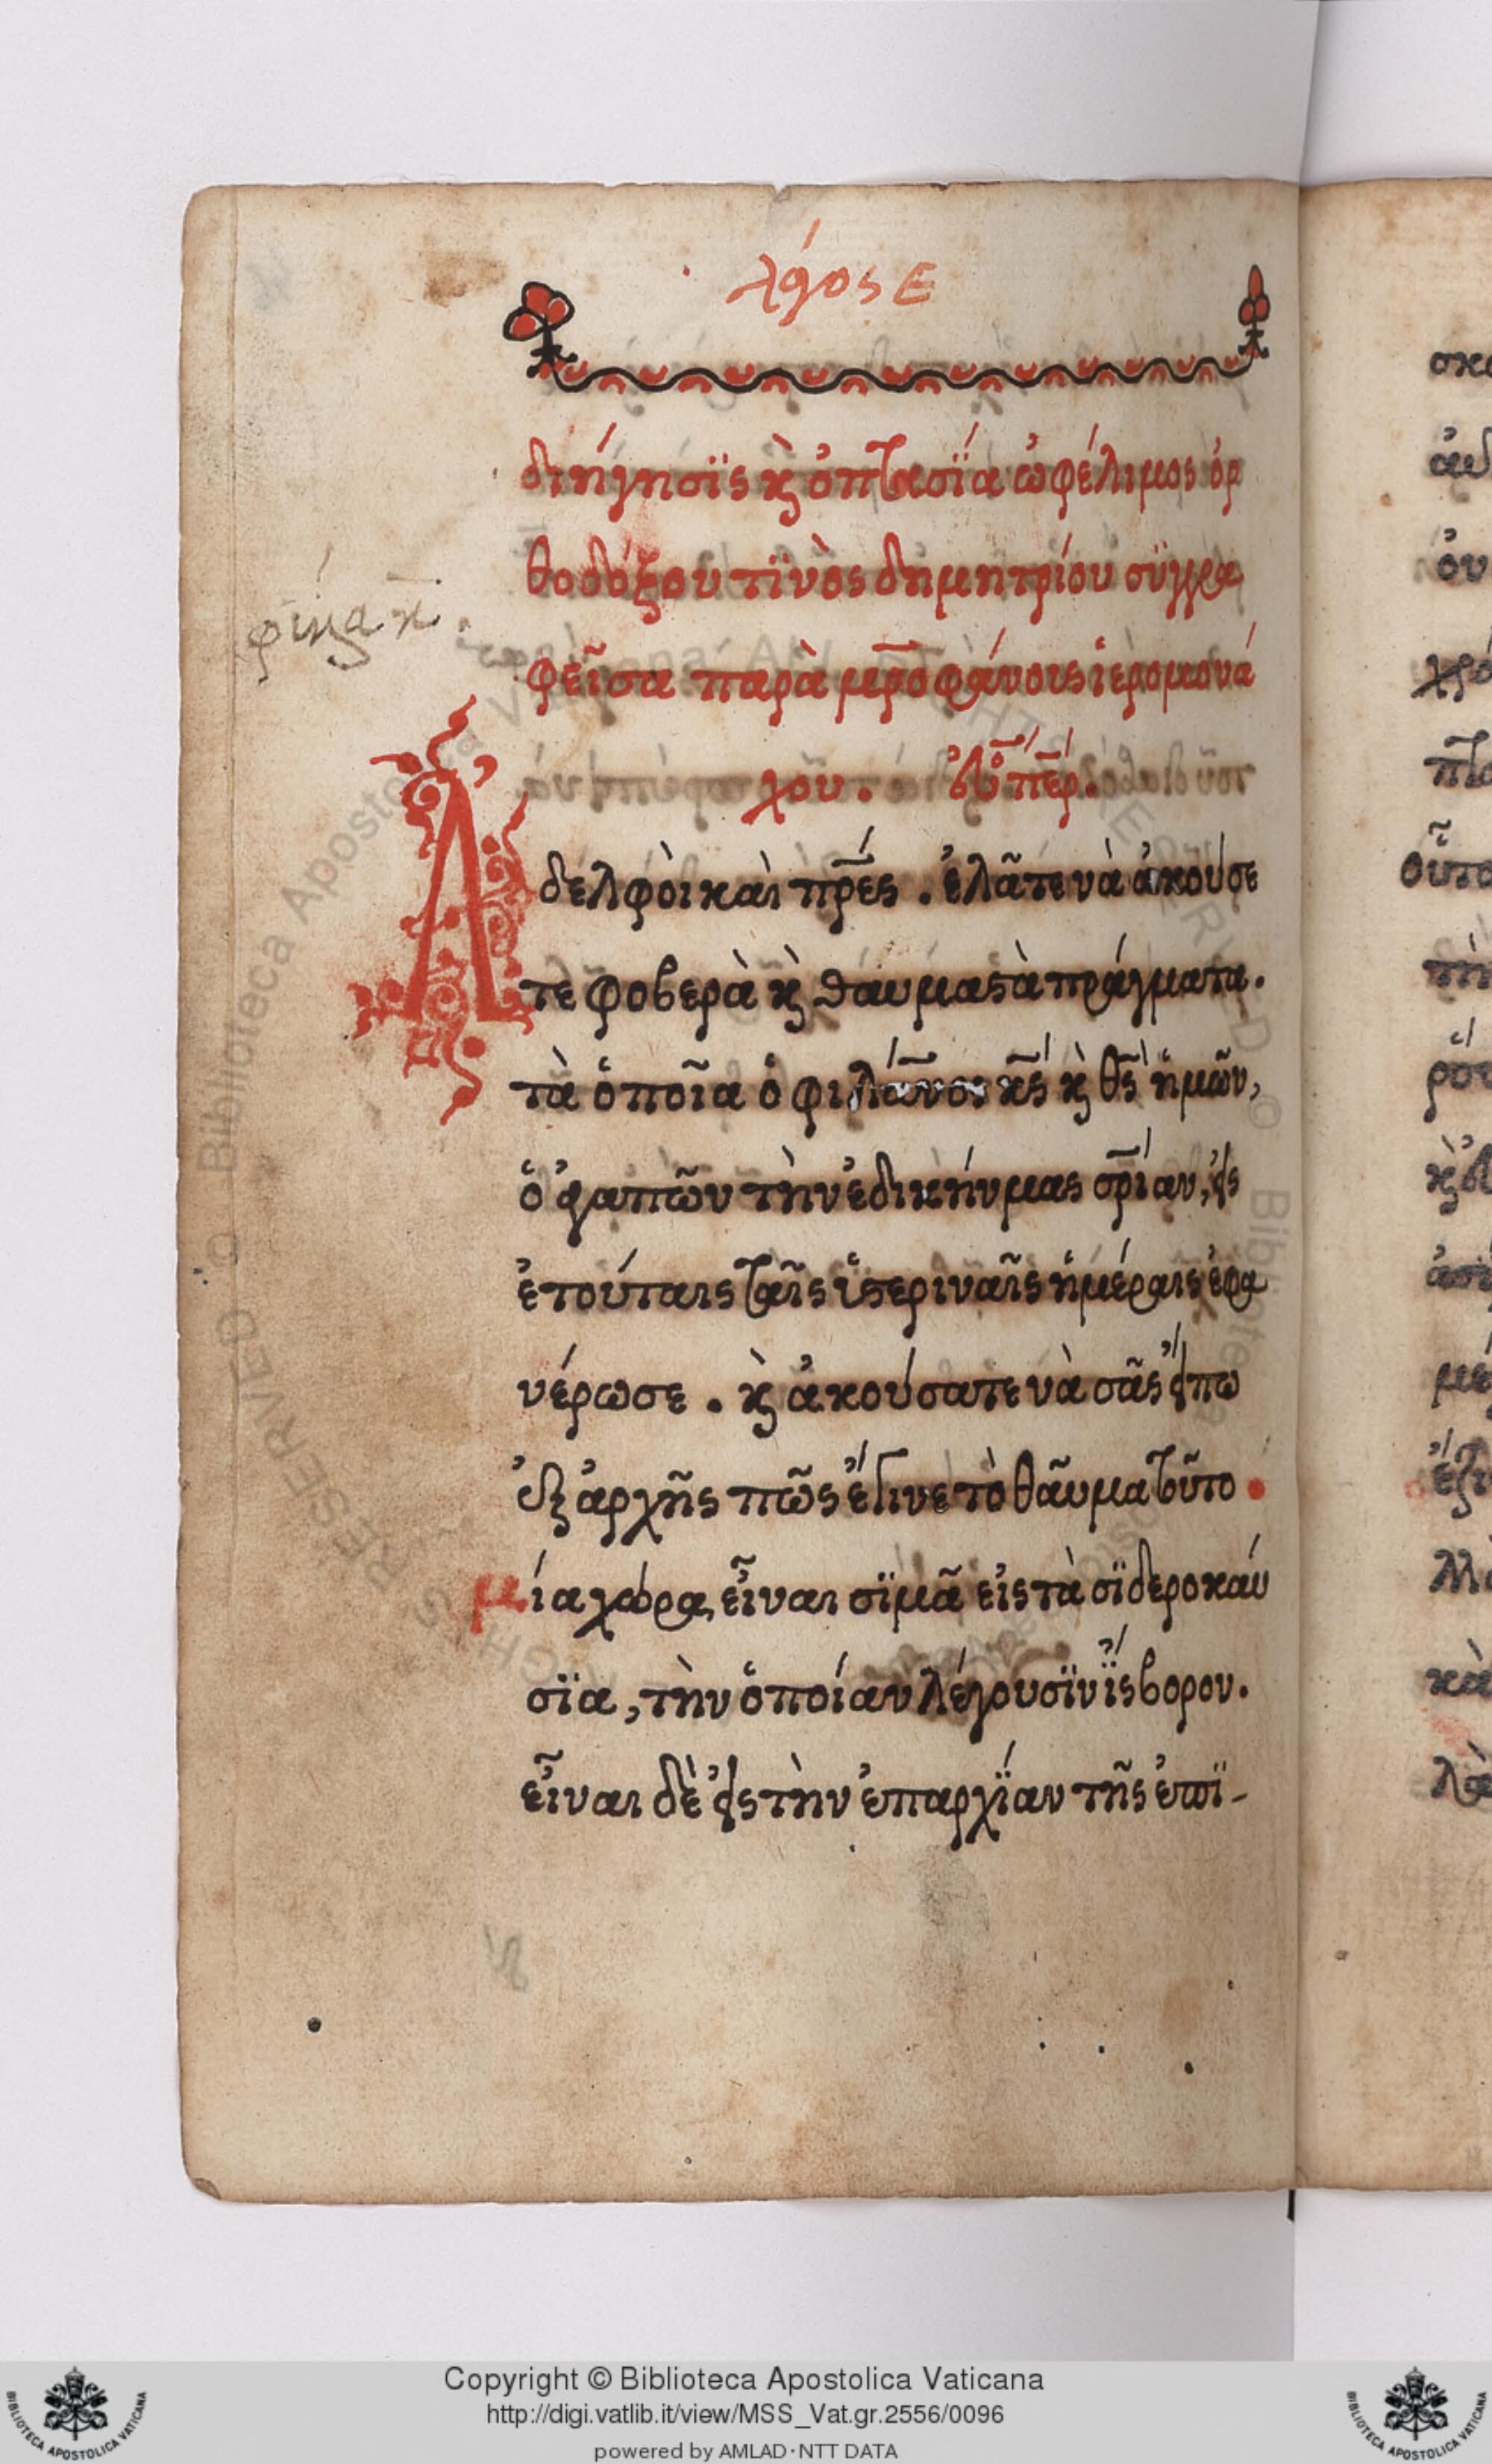 λόγος Ε
διήγησϊς κ̀ ὀπτασΐα ὠφέλιμος ὀρ
θοδόξου τϊνὸς δημητρίου σϋγγρα
φεῖσα παρὰ μητροφάνους ἱερομονά
χου.
Ἀδελφὸι καὶ πρ̅ες. ἐλᾶτε νὰ ἀκούσε
τε φοβερὰ κ̀ θαυμαστὰ πράγματα.
τὰ ὁποῖα ὁ φιλάνος κ̅ς κ̀ θ̅ς ἡμῶν,
ὁ ἀγαπῶν τὴν ἐδικήν μας σρ̅ίαν, εἰς
ἐτούταις ταῖς ὑστεριναῖς ἡμέραις ἐφα
νέρωσε. κ̀ ἀκούσατε νὰ σᾶς εἴπω
ἐξ ἀρχῆς πῶς ἔγινε τὸ θᾶυμα τοῦτο
μία χώρα εἶναι σϊμᾶ εἰς τὰ σϊδεροκαύ
σϊα, τὴν ὁποίαν λέγουσϊν ἴσβορον.
εἶναι δὲ εἰς τὴν ἐπαρχΐαν τῆς ἐπϊ-
Copyright © Biblioteca Apostolica Vaticana
http://digi.vatlib.it/view/MSS_Vat.gr.2556/0096
powered by AMLAD·NTT DATA